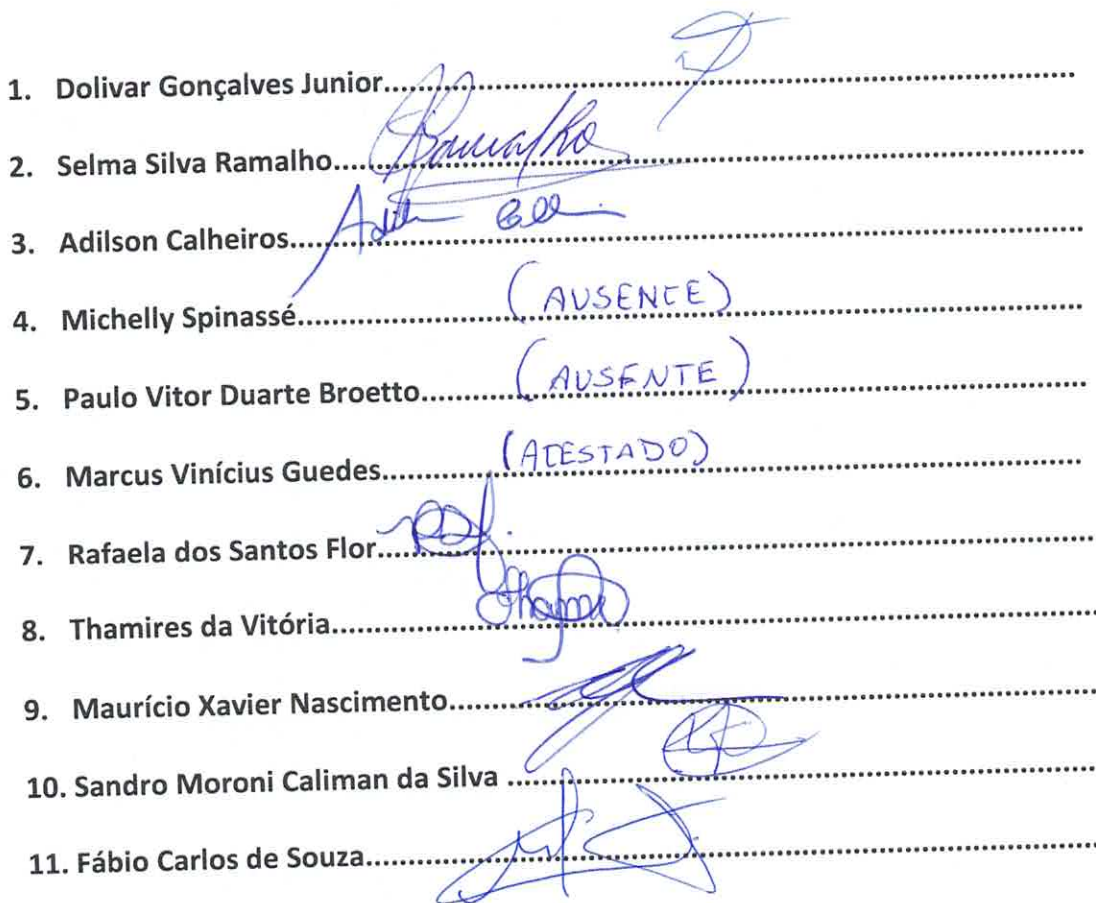 1. Dolivar Gonçalves Junior
2. Selma Silva Ramalho Ramalho
3. Adilson Calheiros
4. Michelly Spinassé (AUSENTE)
5. Paulo Vitor Duarte Broetto (AUSENTE)
6. Marcus Vinícius Guedes (ATESTADO)
7. Rafaela dos Santos Flor
8. Thamires da Vitória
9. Maurício Xavier Nascimento
10. Sandro Moroni Caliman da Silva
11. Fábio Carlos de Souza